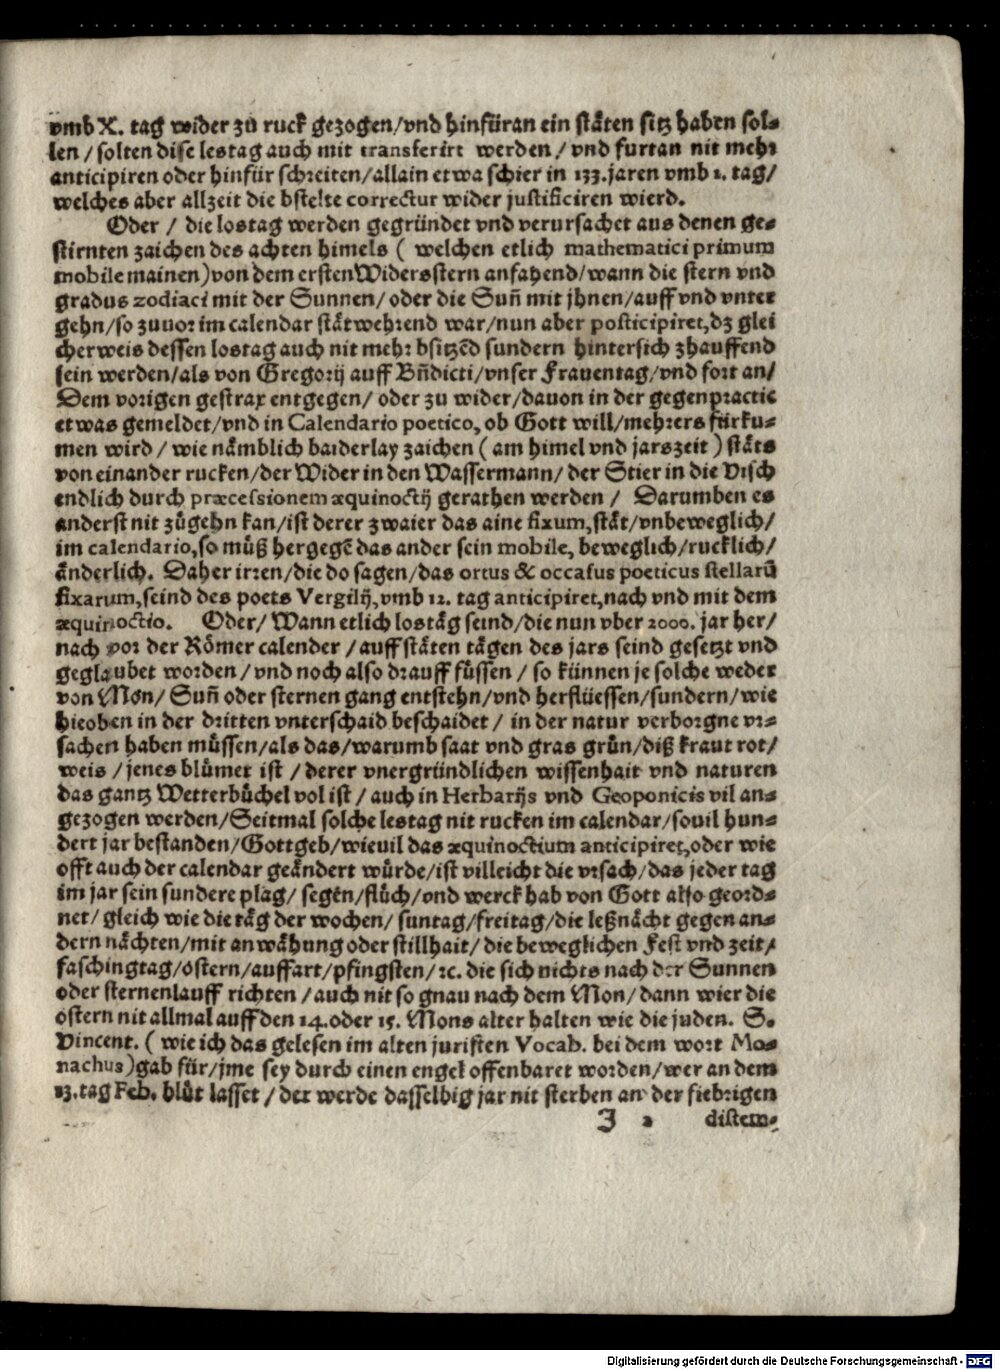 vmb X. tag wider zů ruck gezogen/vnd hinfüran ein stäten sitz haben sol-
len / solten dise lestag auch mit transferirt werden / vnd furtan nit mehr
anticipiren oder hinfür schreiten/allain etwa schier in 133.jaren vmb 1. tag/
welches aber allzeit die bstelte correctur wider justificiren wierd.
Oder / die lostag werden gegründet vnd verursachet aus denen ge-
stirnten zaichen des achten himels ( welchen etlich mathematici primum
mobile mainen)von dem ersten Widersstern anfahend/wann die stern vnd
gradus zodiaci mit der Sunnen/ oder die Suñ mit jhnen/auff vnd vnter
gehn/so zuuor im calendar stätwehrend war/nun aber posticipiret,dz glei
cherweis dessen lostag auch nit mehr bsitzēd sundern hintersich zhauffend
sein werden/als von Gregorij auff Bñdicti/vnser Frauentag/vnd fort an/
Dem vorigen gestrax entgegen/ oder zu wider/dauon in der gegenpractic
etwas gemeldet/vnd in Calendario poetico, ob Gott will/mehrers fürku-
men wird / wie nämblich baiderlay zaichen ( am himel vnd jarszeit ) stäts
von einander rucken/der Wider in den Wassermann/ der Stier in die Visch
endlich durch præcessionem æquinoctij gerathen werden / Darumben es
anderst nit zůgehn kan/ist derer zwaier das aine fixum,stät/vnbeweglich/
im calendario,so můß hergegē das ander sein mobile, beweglich/rucklich/
änderlich. Daher irren/die do sagen/das ortus & occasus poeticus stellarū
fixarum,seind des poets Vergilij,vmb 12. tag anticipiret,nach vnd mit dem
æquinoctio. Oder/ Wann etlich lostäg seind/die nun vber 2000. jar her/
nach vor der Römer calender / auff stäten tägen des jars seind gesetzt vnd
geglaubet worden/vnd noch also drauff füssen / so künnen je solche weder
von Mon/ Suñ oder sternen gang entstehn/vnd herflüessen/sundern/wie
hieoben in der dritten vnterschaid beschaidet / in der natur verborgne vr-
sachen haben müssen/als das/warumb saat vnd gras grůn/diß kraut rot/
weis /jenes blůmet ist / derer vnergründlichen wissenhait vnd naturen
das gantz Wetterbůchel vol ist / auch in Herbarijs vnd Geoponicis vil an-
gezogen werden/Seitmal solche lestag nit rucken im calendar/souil hun-
dert jar bestanden/Gottgeb/wieuil das æquinoctium anticipiret,oder wie
offt auch der calendar geändert würde/ist villeicht die vrsach/das jeder tag
im jar sein sundere plag/ segēn/flůch/vnd werck hab von Gott also geord-
net/ gleich wie die täg der wochen/ suntag/freitag/die leßnächt gegen an-
dern nächten/mit anwähung oder stillhait/ die beweglichen Fest vnd zeit/
faschingtag/ostern/auffart/pfingsten/ꝛc. die sich nichts nach der Sunnen
oder sternenlauff richten / auch nit so gnau nach dem Mon/ dann wier die
ostern nit allmal auff den 14. oder 15. Mons alter halten wie die juden. S.
Vincent. ( wie ich das gelesen im alten juristen Vocab. bei dem wort Mo-
nachus)gab für/jme sey durch einen engel offenbaret worden/wer an dem
13. tag Feb. blůt lasset / der werde dasselbig jar nit sterben an der fiebrigen
J 2 distem-
Digitalisierung gefördert durch die Deutsche Forschungsgemeinschaft - DFG